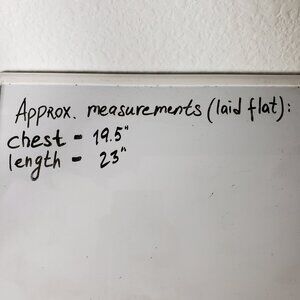 Approx. measurements (laid flat):
chest - 19.5"
length - 23"